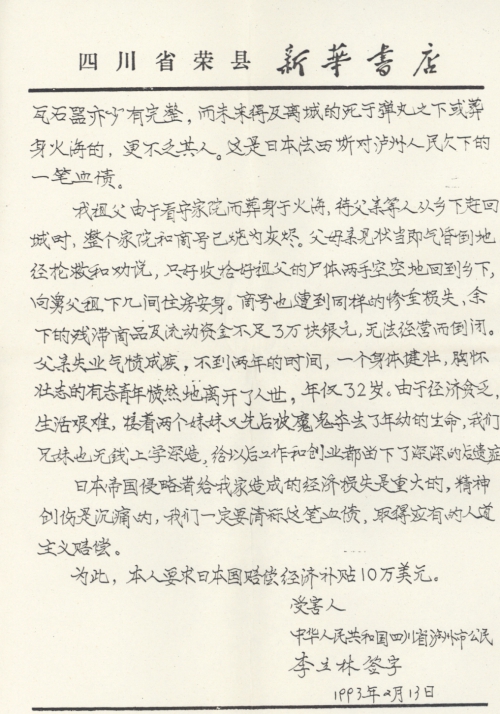 四川省荣县 新華書店
瓦石器亦少有完整，而未来得及离城的死于弹丸之下或葬
身火海的，更不乏其人。这是日本法西斯对泸州人民欠下的
一笔血债。
我祖父由于看守家院而葬身于火海，待父亲等人从乡下赶回
城时，整个家院和商号已烧为灰烬。父母亲见状当即气昏倒地
经抢救和劝说，只好收拾好祖父的尸体两手空空地回到乡下，
向舅父租下几间住房安身。商号也遭到同样的惨重损失，余
下的残滞商品及流动资金不足3万块银元，无法经营而倒闭。
父亲失业气愤成疾，不到两年的时间，一个身体健壮，胸怀
壮志的有志青年愤然地离开了人世，年仅32岁。由于经济贫乏，
生活艰难，接着两个妹妹又先后被魔鬼夺去了年幼的生命，我们
兄妹也无钱上学深造，给以后工作和创业都留下了深深的后遗症
日本帝国侵略者给我家造成的经济损失是重大的，精神
创伤是沉痛的，我们一定要清算这笔血债，取得应有的人道
主义赔偿。
为此，本人要求日本国赔偿经济补贴10万美元。
受害人
中华人民共和国四川省泸州市公民
李立林 签字
1993年2月13日